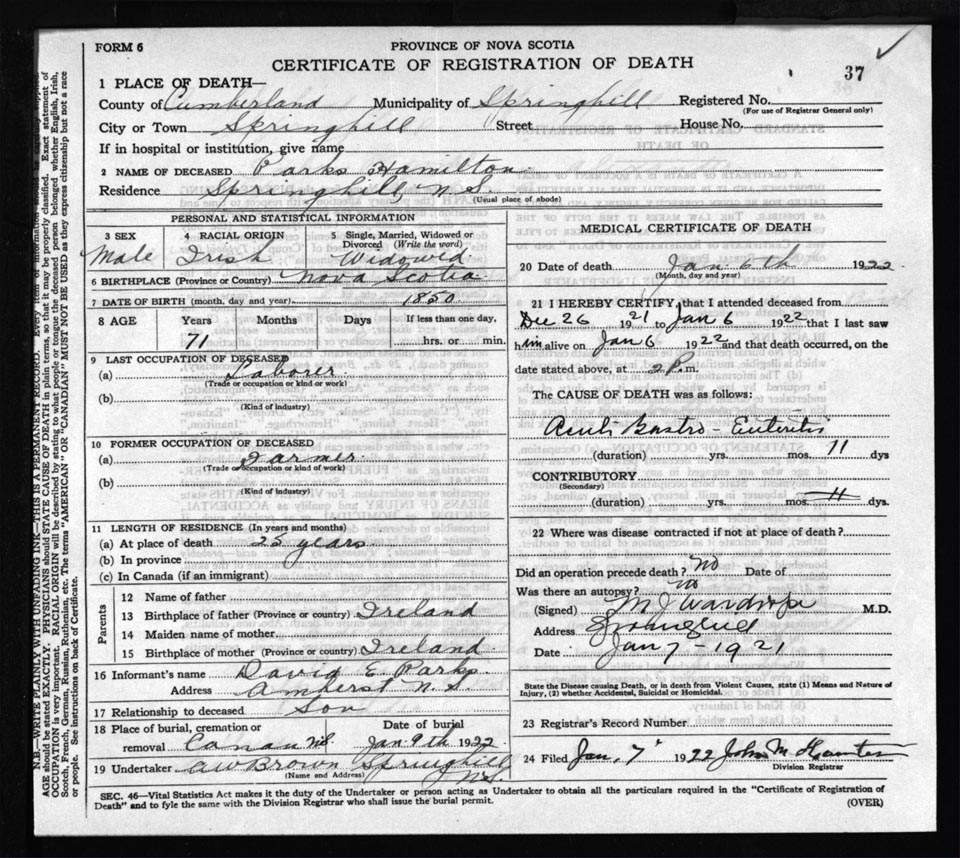 FORM 6
PROVINCE OF NOVA SCOTIA
CERTIFICATE OF REGISTRATION OF DEATH
37
1 PLACE OF DEATH—
County of Cumberland Municipality of Springhill Registered No.
(For use of Registrar General only)
City or Town Springhill Street House No.
If in hospital or institution, give name
2 NAME OF DECEASED Parks Hamilton
Residence Springhill N.S.
(Usual place of abode)
PERSONAL AND STATISTICAL INFORMATION
3 SEX 4 RACIAL ORIGIN 5 Single, Married, Widowed or Divorced (Write the word)
Male Irish Widowed
6 BIRTHPLACE (Province or Country) Nova Scotia
7 DATE OF BIRTH (month, day and year) 1850
8 AGE Years Months Days If less than one day,
71 hrs. or min.
9 LAST OCCUPATION OF DECEASED
(a) Laborer
(Trade or occupation or kind or work)
(b)
(Kind of industry)
10 FORMER OCCUPATION OF DECEASED
(a) Farmer
(Trade or occupation or kind or work)
(b)
(Kind of industry)
11 LENGTH OF RESIDENCE (In years and months)
(a) At place of death 25 years
(b) In province
(c) In Canada (if an immigrant)
Parents
12 Name of father
13 Birthplace of father (Province or country) Ireland
14 Maiden name of mother
15 Birthplace of mother (Province or country) Ireland
16 Informant's name David E. Parks
Address Amherst N.S.
17 Relationship to deceased Son
18 Place of burial, cremation or Date of burial
removal Canaan N.S. Jan 9th 1922
19 Undertaker A W Brown Springhill N.S.
(Name and Address)
MEDICAL CERTIFICATE OF DEATH
20 Date of death Jan 6th 1922
(Month, day and year)
21 I HEREBY CERTIFY, that I attended deceased from
Dec 26 1921 to Jan 6 1922 that I last saw
him alive on Jan 6 1922 and that death occurred, on the
date stated above, at 2 P.m.
The CAUSE OF DEATH was as follows:
Acute Gastro-Enteritis
(duration) yrs. mos. 11 dys
CONTRIBUTORY
(Secondary)
(duration) yrs. mos. 11 dys.
22 Where was disease contracted if not at place of death?
Did an operation precede death? no Date of
Was there an autopsy? no
(Signed) M J Wardrope M.D.
Address Springhill
Date Jan 7 - 1921
State the Disease causing Death, or in death from Violent Causes, state (1) Means and Nature of
Injury, (2) whether Accidental, Suicidal or Homicidal.
23 Registrar's Record Number
24 Filed Jan, 7 1922 John M
Division Registrar
SEC. 46—Vital Statistics Act makes it the duty of the Undertaker or person acting as Undertaker to obtain all the particulars required in the "Certificate of Registration of
Death" and to fyle the same with the Division Registrar who shall issue the burial permit. (OVER)
N.B.—WRITE PLAINLY WITH UNFADING INK—THIS IS A PERMANENT RECORD. Every item of information should be
AGE should be stated EXACTLY. PHYSICIANS should STATE CAUSE OF DEATH in plain terms, so that it may be properly classified. Exact statement of
OCCUPATION is very important. RACIAL ORIGIN will be described by stating to what people or tongue the deceased person belonged whether English, Irish,
Scotch, French, German, Russian, Ruthenian, etc. The terms "AMERICAN" or "CANADIAN" MUST NOT BE USED as they express citizenship but not a race
or people. See instructions on back of Certificate.